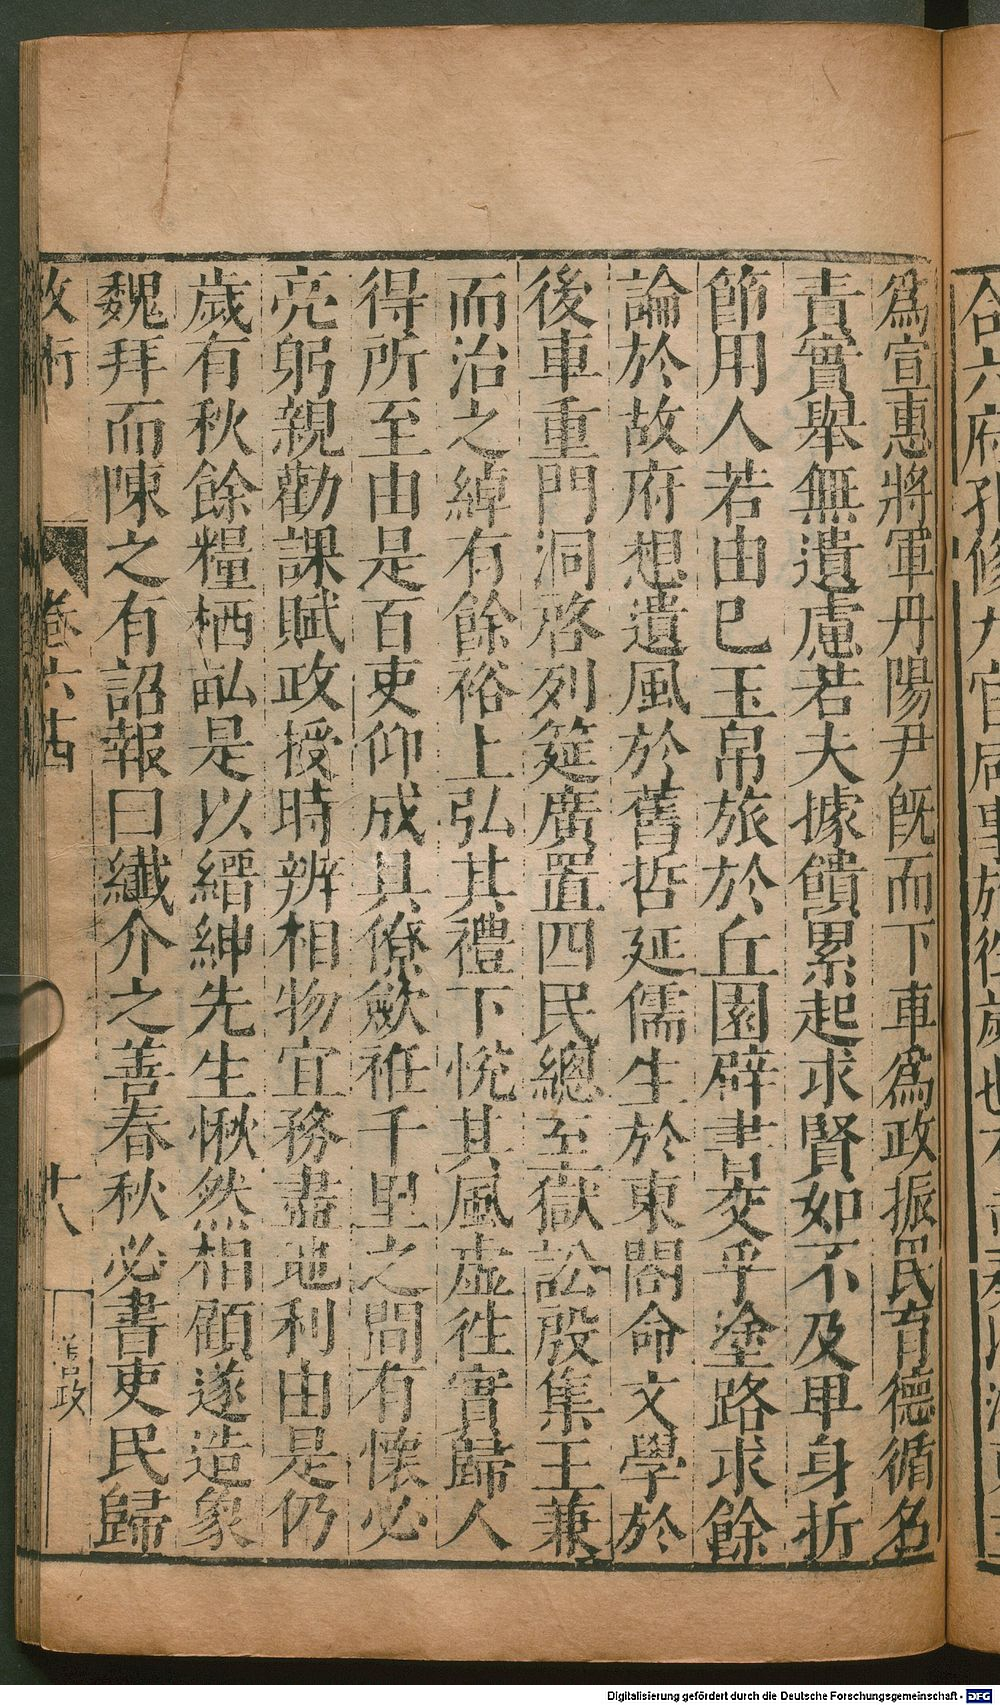 爲宣惠將軍丹陽尹旣而下車爲政振民育德循名
責實舉無遺慮若夫據饋累起求賢如不及卑身折
節用人若由巳玉帛旅於丘園辟書交乎塗路求餘
論於故府想遺風於舊哲延儒生於東閤命文學於
後車重門洞啓列筵廣置四民總至嶽訟殷集王兼
而治之綽有餘裕上弘其禮下悅其風虛往實歸人
得所至由是百吏仰成具僚斂袵千里之間有懷必
亮躬親勸課賦政授時辨相物宜務盡地利由是仍
歲有秋餘糧栖畝是以縉紳先生愀然相顧遂造象
魏拜而陳之有詔報曰纖介之善春秋必書吏民歸
卷六
廿八
善政
Digitalisierung gefördert durch die Deutsche Forschungsgemeinschaft - DFG